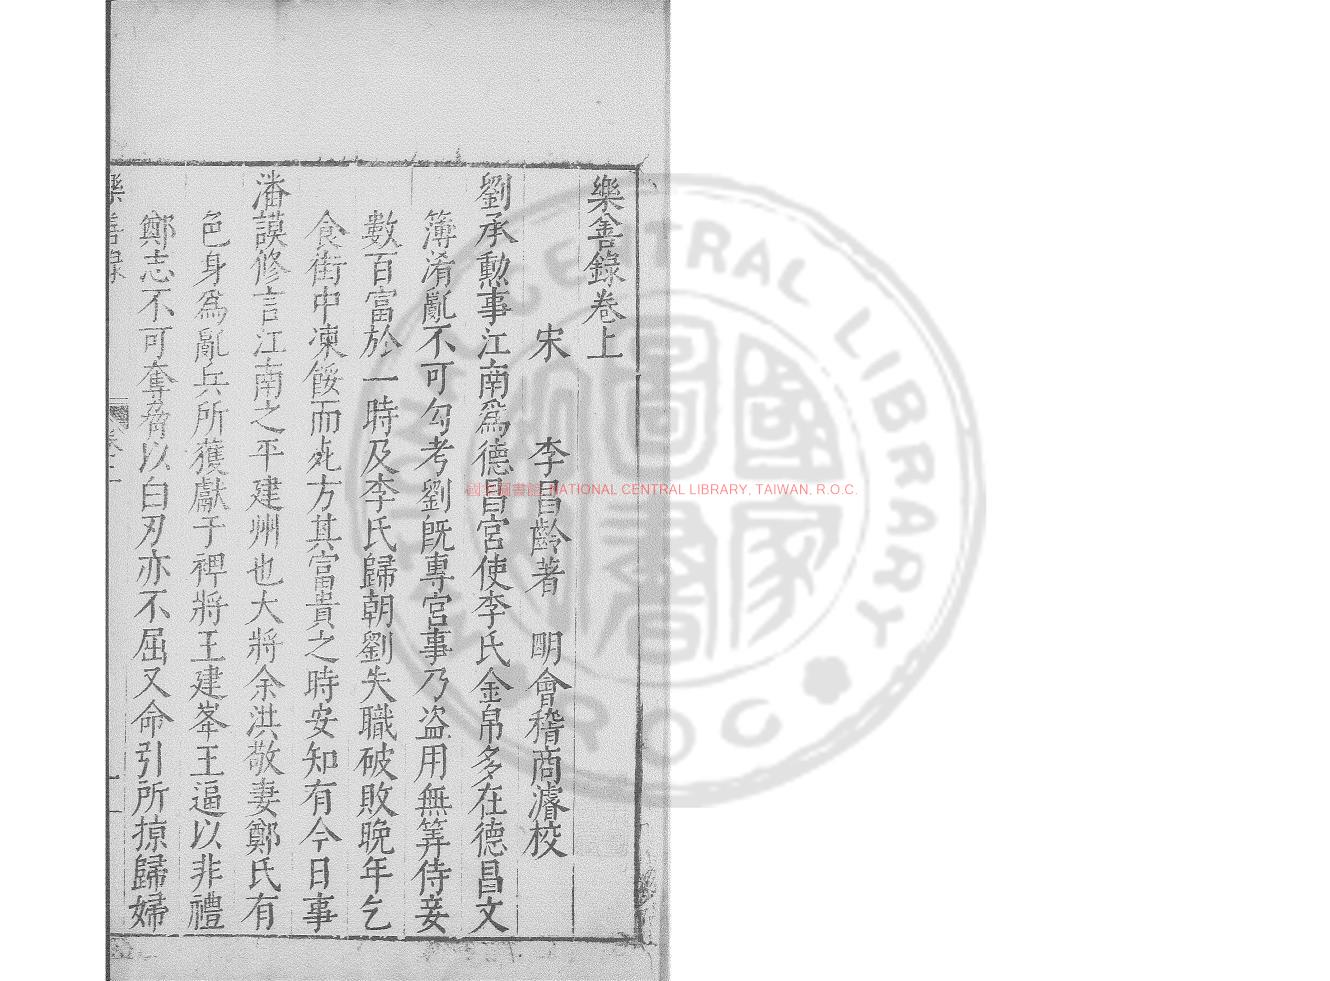 樂善錄卷上
宋 李昌齡著 明會稽商濬校
劉承勳事江南爲德昌宮使李氏金帛多在德昌文
簿淆亂不可勾考劉旣專宮事乃盗用無筭侍妾
數百富於一時及李氏歸朝劉失職破敗晩年乞
食街中凍餒而死方其富貴之時安知有今日事
潘謨修言江南之平建州也大將余洪敬妻鄭氏有
色身爲亂兵所獲獻于裨將王建峯王逼以非禮
鄭志不可奪脅以白刃亦不屈又命引所掠歸婦
樂善錄 卷上 一
國家圖書館 NATIONAL CENTRAL LIBRARY, TAIWAN, R.O.C.
NATIONAL CENTRAL LIBRARY
ROC